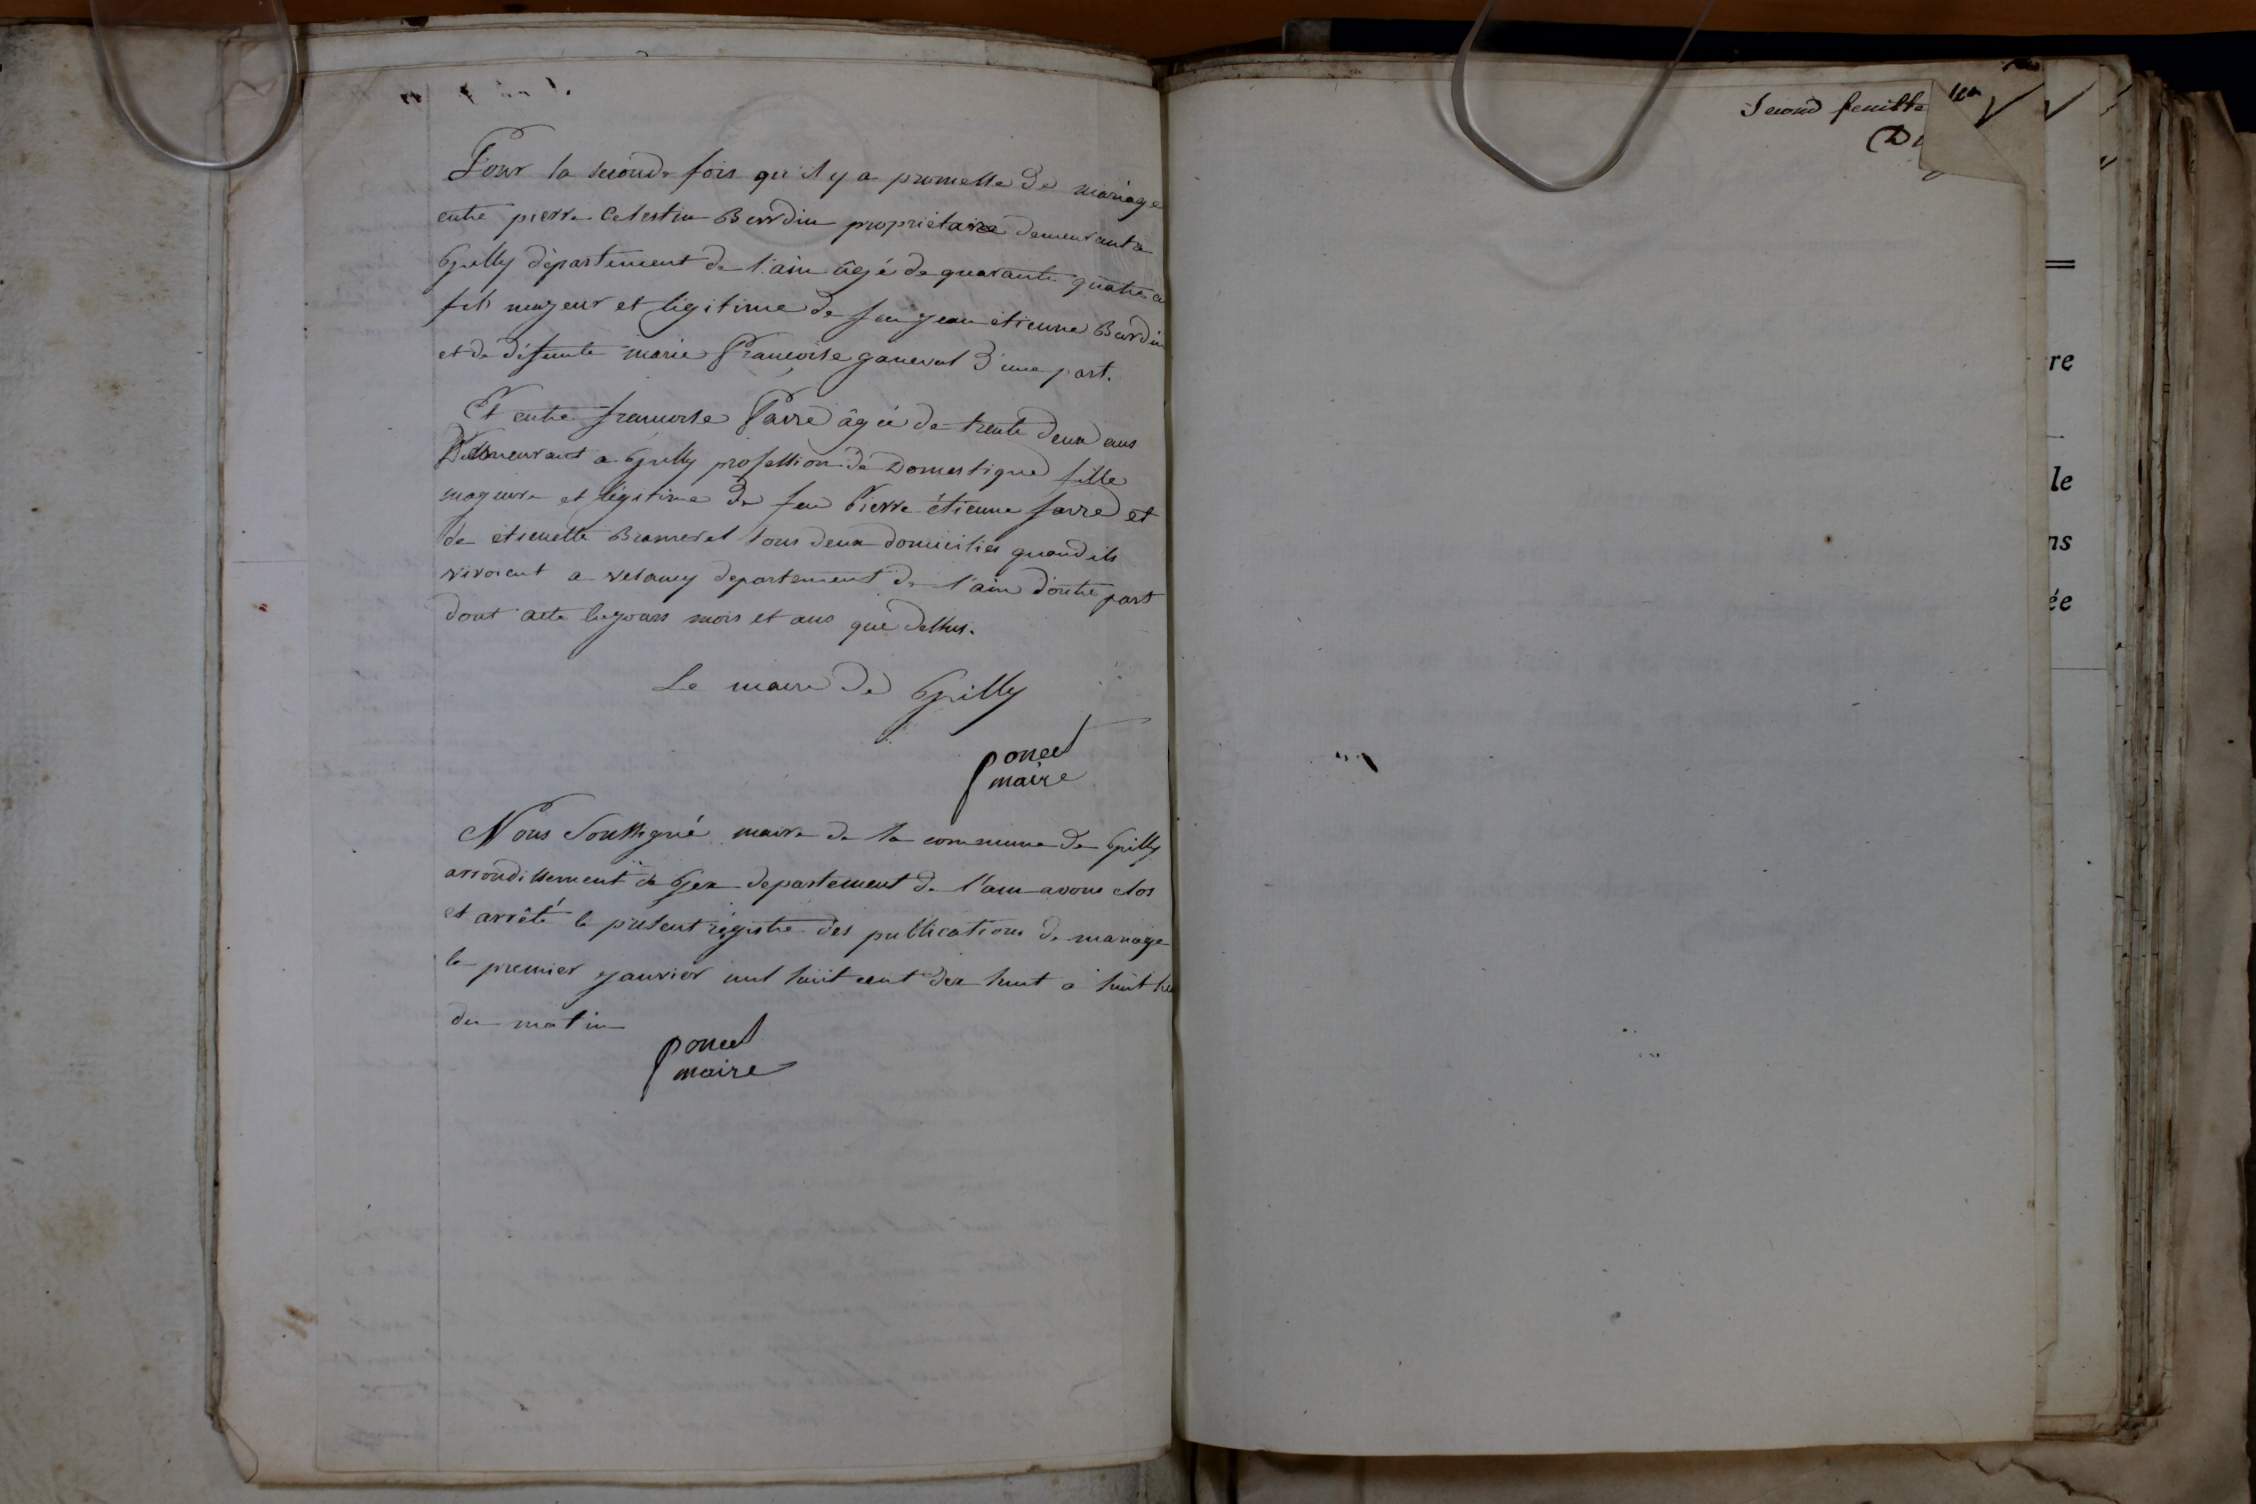 Pour la seconde fois qu'il y a promesse de mariage
entre pierre Celestin Burdin propriétaire demeurant a
Grilly département de l'ain âgé de quarante quatre a
fils majeur et légitime de feu jean étienne Burdin
et de défunte marie Francoise ganeval d'une part.
Et entre francoise Favre âgée de trente deux ans
Demeurant a Grilly profession de Domestique fille
mageure et légitime de feu Pierre étienne favre et
de étienette tous deux domicilies quand ils
vivoient a vesancy departement de l'ain d'outre part
dont acte les jours mois et ans que dessus.
Le maire de Grilly
poncet
maire
Nous Soussigné maire de la commune de Grilly
arrondissement de Gex departement de l'ain avons clos
et arrêté le présent régistre des publications de mariage
le premier janvier mil huit cent dix huit à huit heu
du matin
poncet
maire
Second feuille
re
le
ns
ée